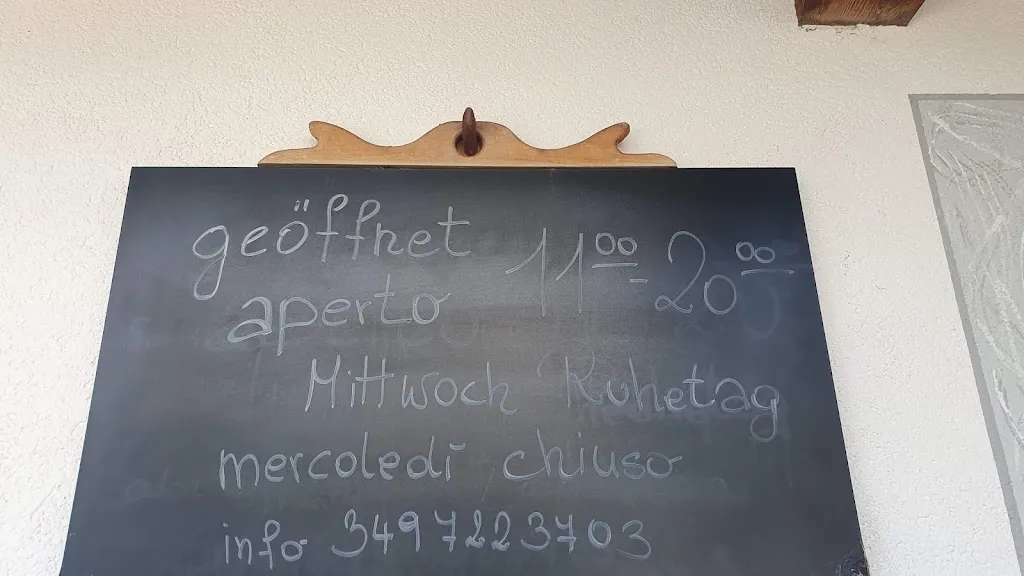 geöffnet 11⁰⁰ - 20⁰⁰
aperto
Mittwoch Ruhetag
mercoledì chiuso
info 3497223703